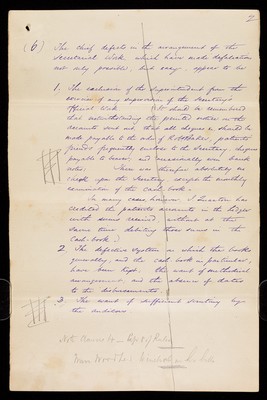 2
(6) The chief defects in the management of the
Secretarial Work which have made defalcation
not only possible, but easy, appear to be
1. The exclusion of the Superintendent from the
exercise of any supervision of the Secretary's
Official Work. It should be remembered
that notwithstanding the printed notice on the
accounts sent out, that all cheques &c should be
made payable to the order of patients'
friends frequently enclose to the Secretary cheques
payable to bearer, and occasionally even bank
notes. There was therefore absolutely no
check upon the Secretary except the monthly
examination of the Cash-book.
In many cases however, 
credited the patients accounts in the ledger
with sums received, without at the
same time debiting those sums in the
Cash-book.
2. The defective system in which the books
generally, and the cash-book in particular,
have been kept; the want of methodical
arrangement and the absence of dates
to the disbursements.
3. The want of sufficient scrutiny by
the auditors.
Note